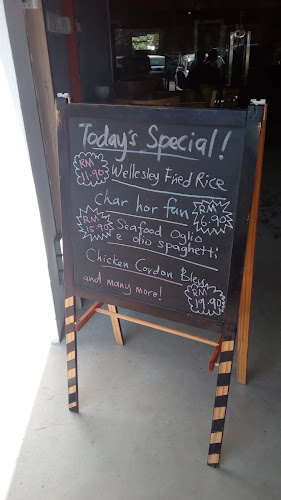 Today's Special!
RM 11.90 Wellesley Fried Rice
Char hor fun RM 6.90
RM 15.90 Seafood Oglio
e olio spaghetti
Chicken Cordon Bleu
and many more! RM 19.90